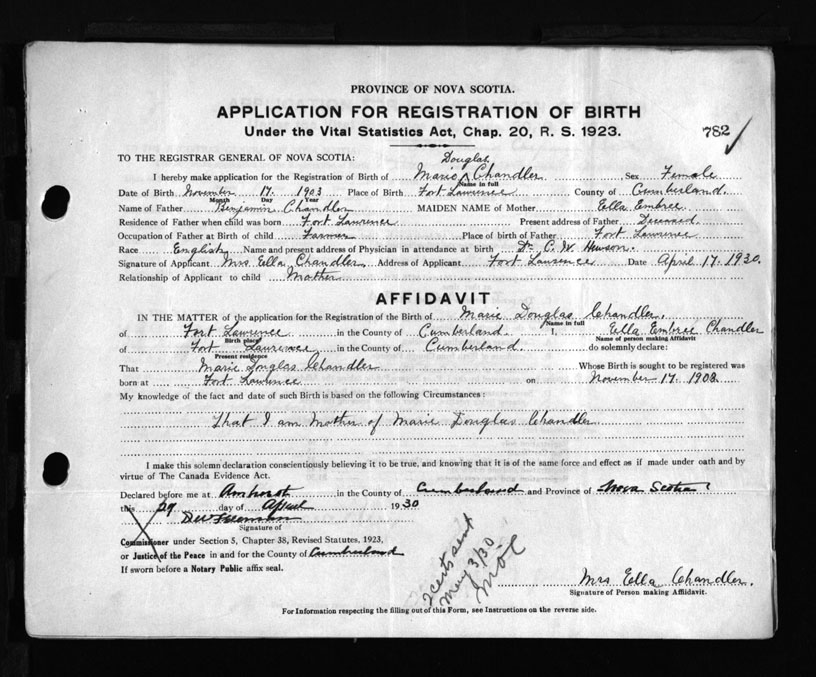 PROVINCE OF NOVA SCOTIA.
APPLICATION FOR REGISTRATION OF BIRTH
Under the Vital Statistics Act, Chap. 20, R. S. 1923.
782
TO THE REGISTRAR GENERAL OF NOVA SCOTIA:
Douglas
I hereby make application for the Registration of Birth of Marie Chandler Sex Female
Name in full
Date of Birth November 17. 1903 Place of Birth Fort Lawrence County of Cumberland
Month Day Year
Name of Father Benjamin Chandler MAIDEN NAME of Mother Ella Embree
Residence of Father when child was born Fort Lawrence Present address of Father Deceased
Occupation of Father at Birth of child Farmer Place of birth of Father Fort Lawrence
Race English Name and present address of Physician in attendance at birth Dr. C. W. Hewson.
Signature of Applicant Mrs. Ella Chandler Address of Applicant Fort Lawrence Date April 17. 1930.
Relationship of Applicant to child Mother
AFFIDAVIT
IN THE MATTER of the application for the Registration of the Birth of Marie Douglas Chandler.
Name in full
of Fort Lawrence in the County of Cumberland. I, Ella Embree Chandler
Birth place Name of person making Affidavit
of Fort Lawrence in the County of Cumberland. do solemnly declare:
Present residence
That Marie Douglas Chandler Whose Birth is sought to be registered was
born at Fort Lawrence on November 17. 1903
My knowledge of the fact and date of such Birth is based on the following Circumstances:
That I am Mother of Marie Douglas Chandler
I make this solemn declaration conscientiously believing it to be true, and knowing that it is of the same force and effect as if made under oath and by
virtue of The Canada Evidence Act.
Declared before me at Amherst in the County of Cumberland and Province of Nova Scotia
this 29 day of April 1930
Signature of
Commissioner under Section 5, Chapter 38, Revised Statutes, 1923,
or Justice of the Peace in and for the County of Cumberland
If sworn before a Notary Public affix seal.
2 certs sent
May 3/30
Mrs Ella Chandler.
Signature of Person making Affidavit.
For Information respecting the filling out of this Form, see Instructions on the reverse side.